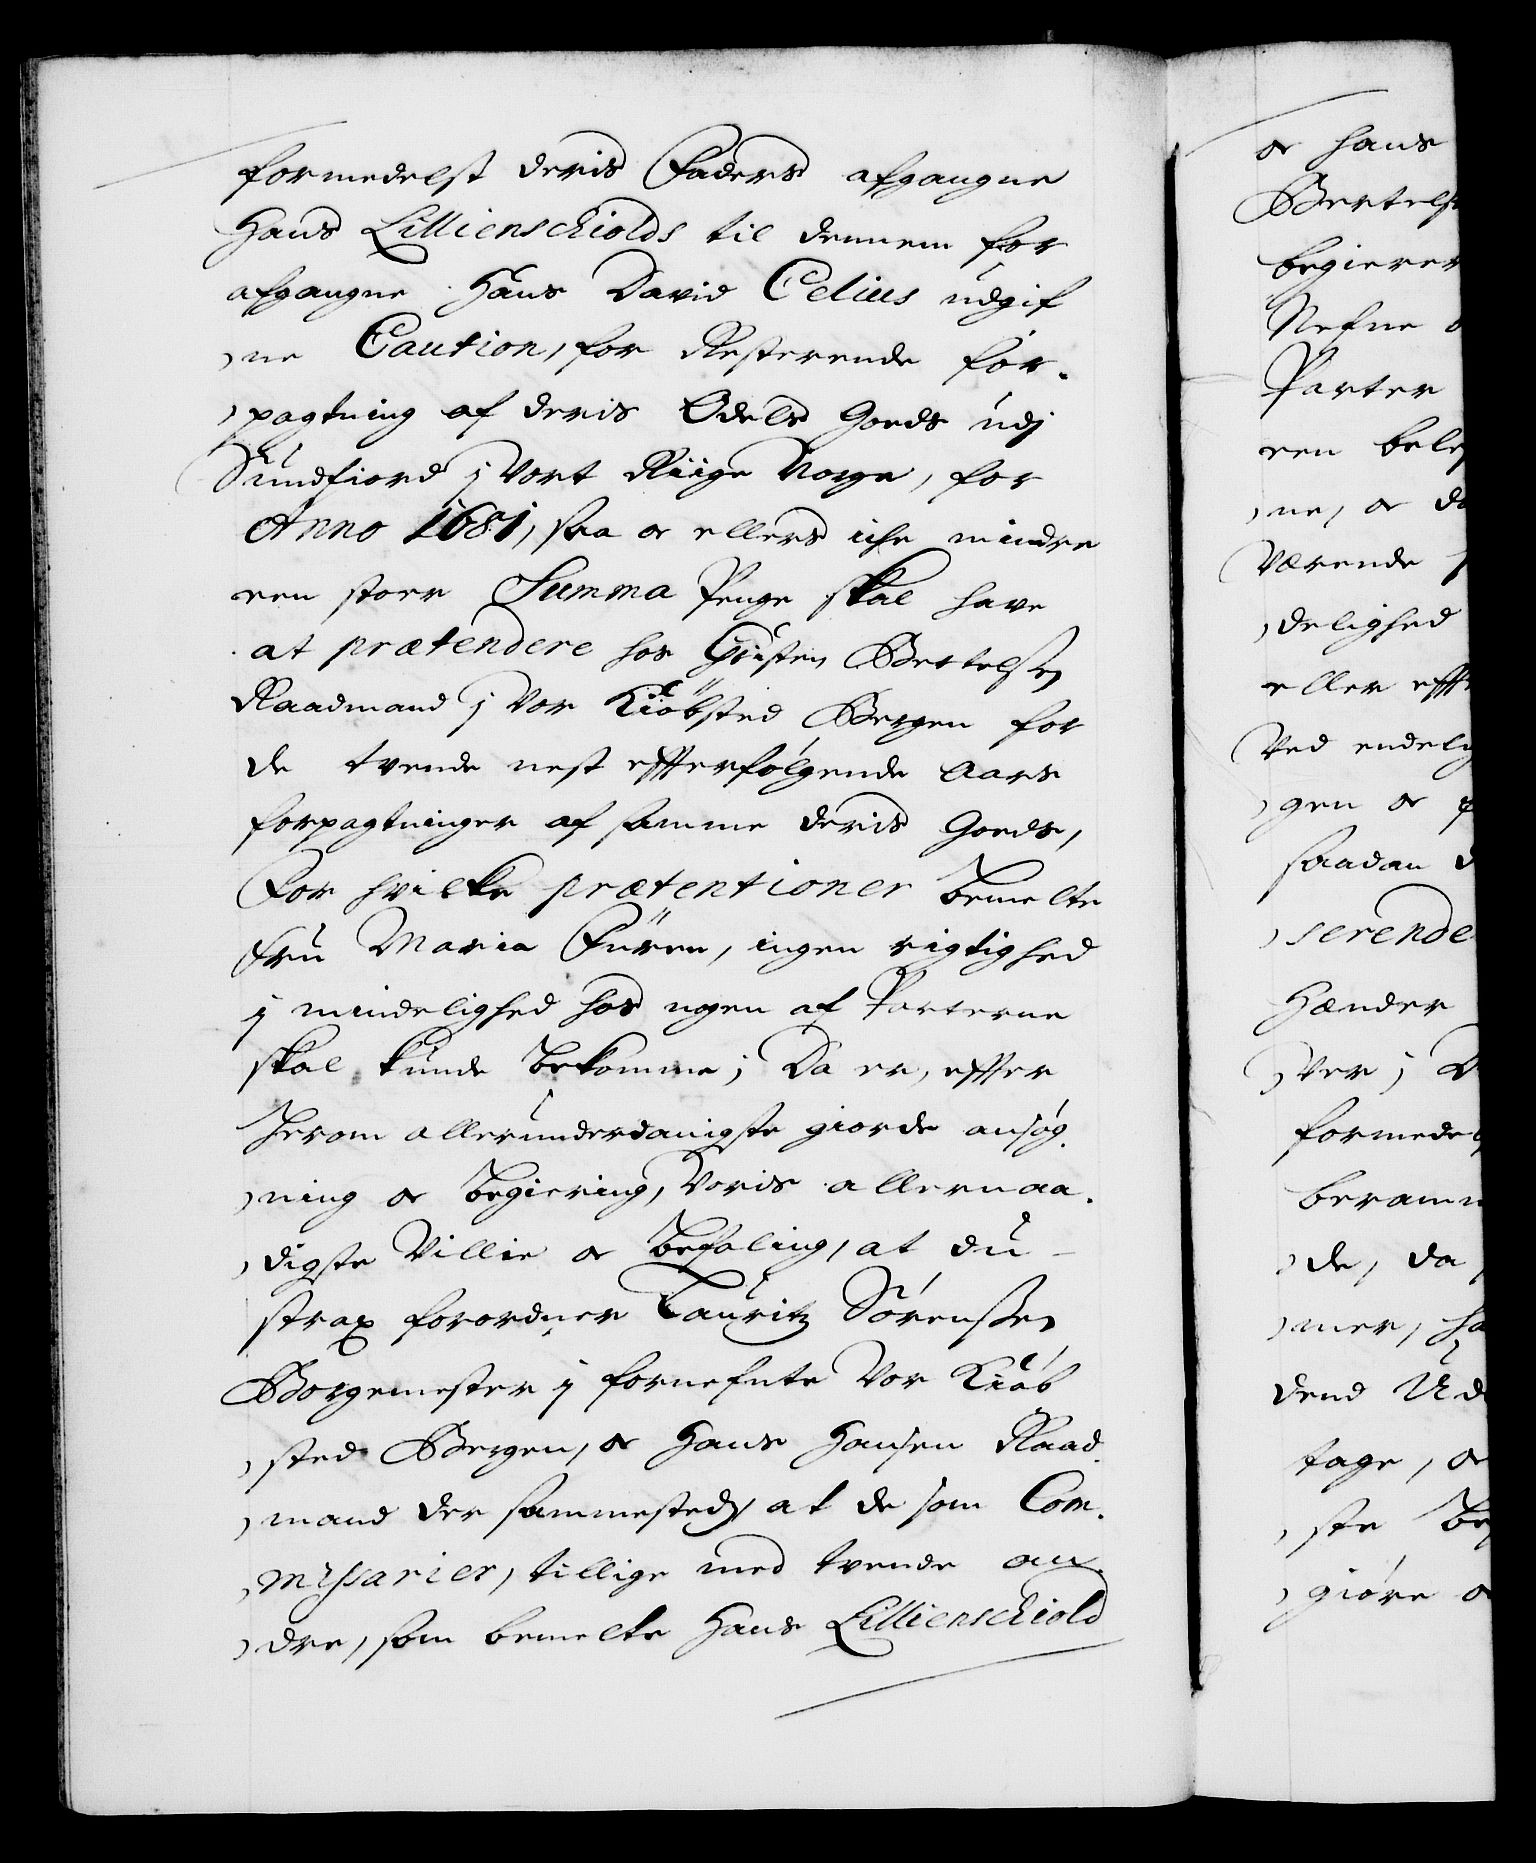 formedelst deris Faders afgangne
Hans Lillienschiolds til dennem for
afgangne Hans David Celius udgif
,ne Caution, for Resterende for-
,pagtning af deris Odels Goeds udj
Sundfiord j Vort Riige Norge, for
Anno 1681, saa oc ellers iche mindre
een stoer Summa Penge skal have
at prætendere hos Christen Bertelsen
Raadmand j Vor Kiøbsted Bergen for
de tvende nest effterfølgende Aars
forpagtninger af samme deris Goeds,
For hvilke prætentioner bemelte
Fru Maria Füren, ingen rigtighed
j mindelighed hos nogen af Parterne
skal kunde bekomme; Da er, effter
herom allerunderdanigste giorde ansøg-
,ning oc begiering, Voris allernaa-
,digste Villie oc befaling, at du
strax forordner Lauritz Sørensen
Borgemester j fornefnte Vor Kiøb
,sted Bergen, oc Hans Hansen Raad-
,mand der sammesteds at de som Com-
,missarier, tillige med tvende an-
,dre, som bemelte Hans Lillienschiold
oc Hans
Bertels
begierer
Nefne
Parter
ren
,ne, oc
Værende
,delighed
eller
Ved
,gen oc
saadan
,serende
Hænder
,Ver j
formede
beram
,de, da
,mer,
dend
tage, oc
,ste
,giøre